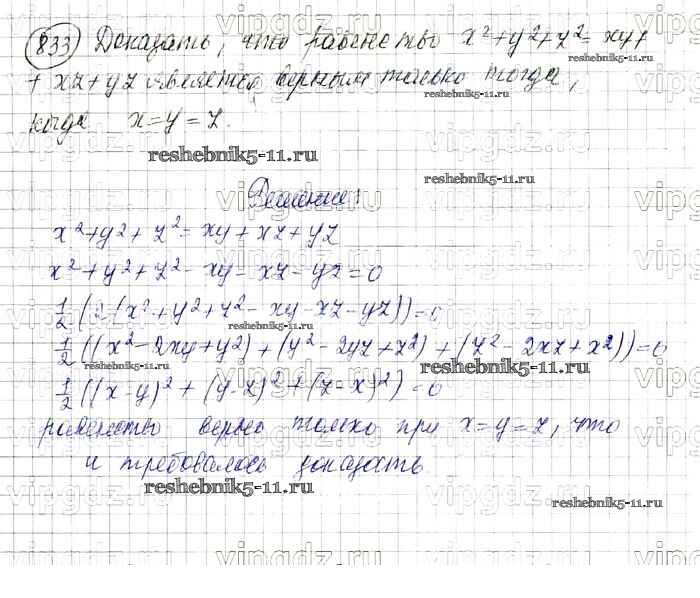 833 Доказать, что равенство x²+y²+z²=xy+
+ xz+yz является верным только тогда,
когда x=y=z.
reshebnik5-11.ru
reshebnik5-11.ru
Решение:
x²+y²+z²=xy+xz+yz
x²+y²+z²-xy-xz-yz=0
1/2(2(x²+y²+z²-xy-xz-yz))=0
reshebnik5-11.ru
1/2((x²-2xy+y²)+(y²-2yz+z²)+(z²-2xz+x²))=0
reshebnik5-11.ru
1/2((x-y)²+(y-z)²+(z-x)²)=0
равенство верно только при x=y=z, что
и требовалось доказать.
reshebnik5-11.ru
reshebnik5-11.ru
vipgdz.ru